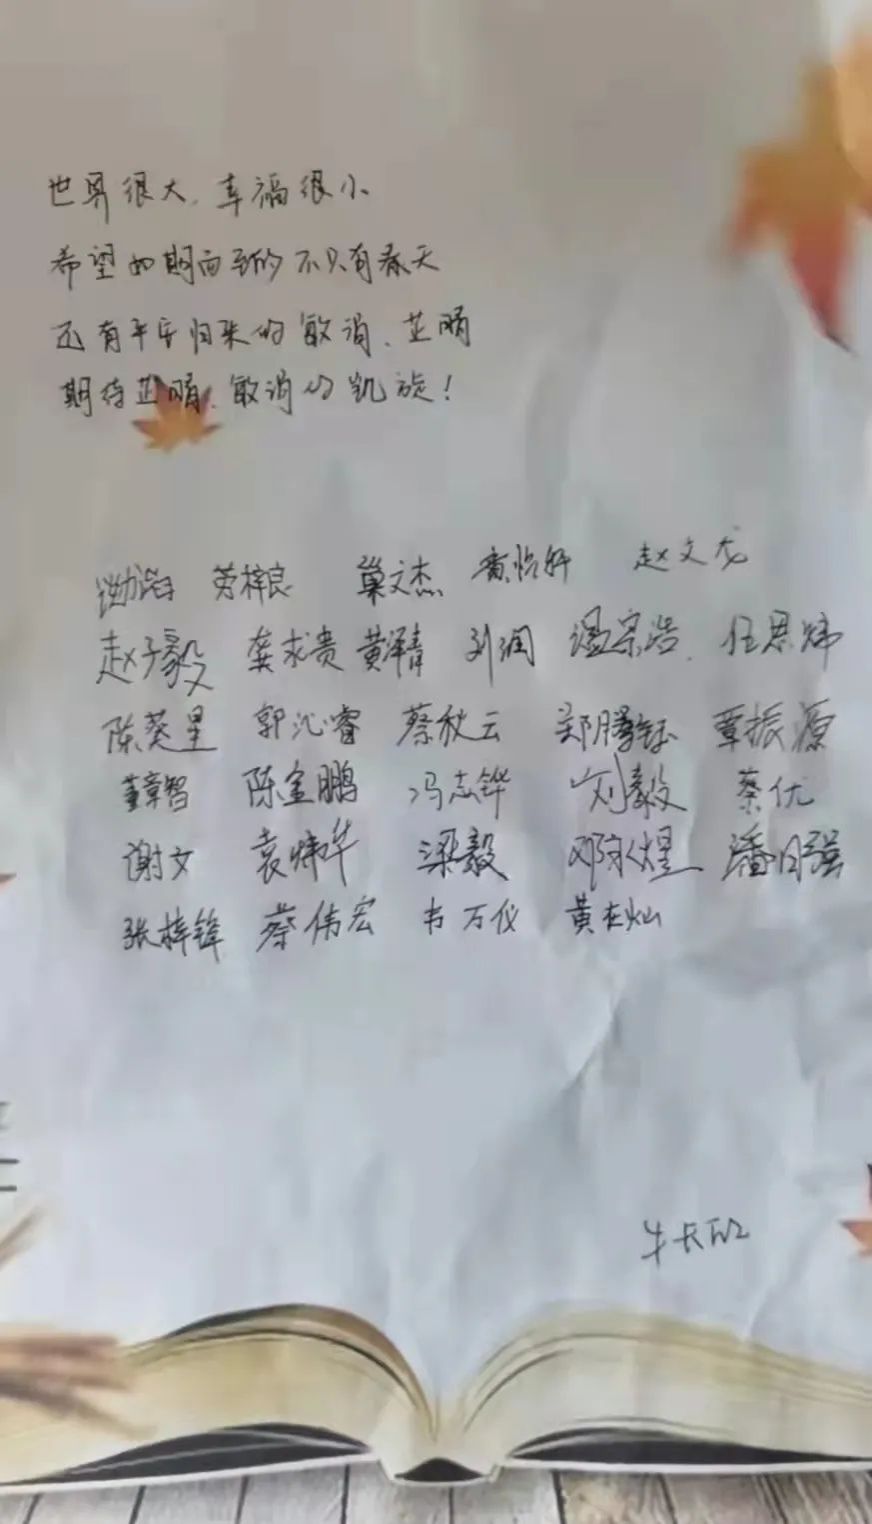 世界很大,幸福很小
希望如期而至的不只有春天
还有平安归来的敏涓、芷晴
期待芷晴、敏涓的凯旋!
劳梓良 巢文杰 黄怡轩 赵文龙
赵子毅 龚求贵 黄泽青 刘润 温宗浩 任思炜
陈葵星 郭沁睿 蔡秋云 郑腾钰 覃振源
董章智 陈金鹏 冯志铧 刘毅 蔡优
谢文 袁炜华 梁毅 邓永煋 潘日强
张梓锋 蔡伟宏 韦万仪 黄在灿
牛卡班